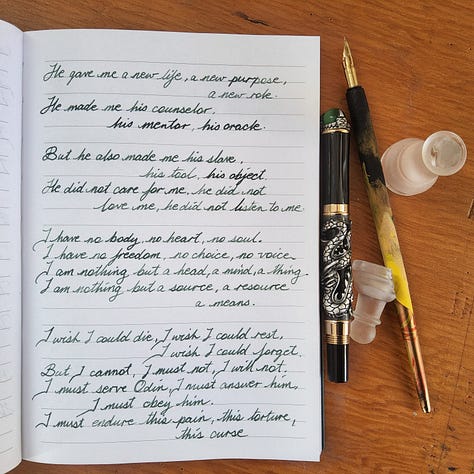 He gave me a new life, a new purpose,
a new role.
He made me his counselor,
his mentor, his oracle.
But he also made me his slave,
his tool, his object.
He did not care for me, he did not
love me, he did not listen to me.
I have no body, no heart, no soul.
I have no freedom, no choice, no voice.
I am nothing but a head, a mind, a thing.
I am nothing but a source, a resource
a means.
I wish I could die, I wish I could rest,
I wish I could forget.
But I cannot, I must not, I will not.
I must serve Odin, I must answer him,
I must obey him.
I must endure this pain, this torture,
this curse